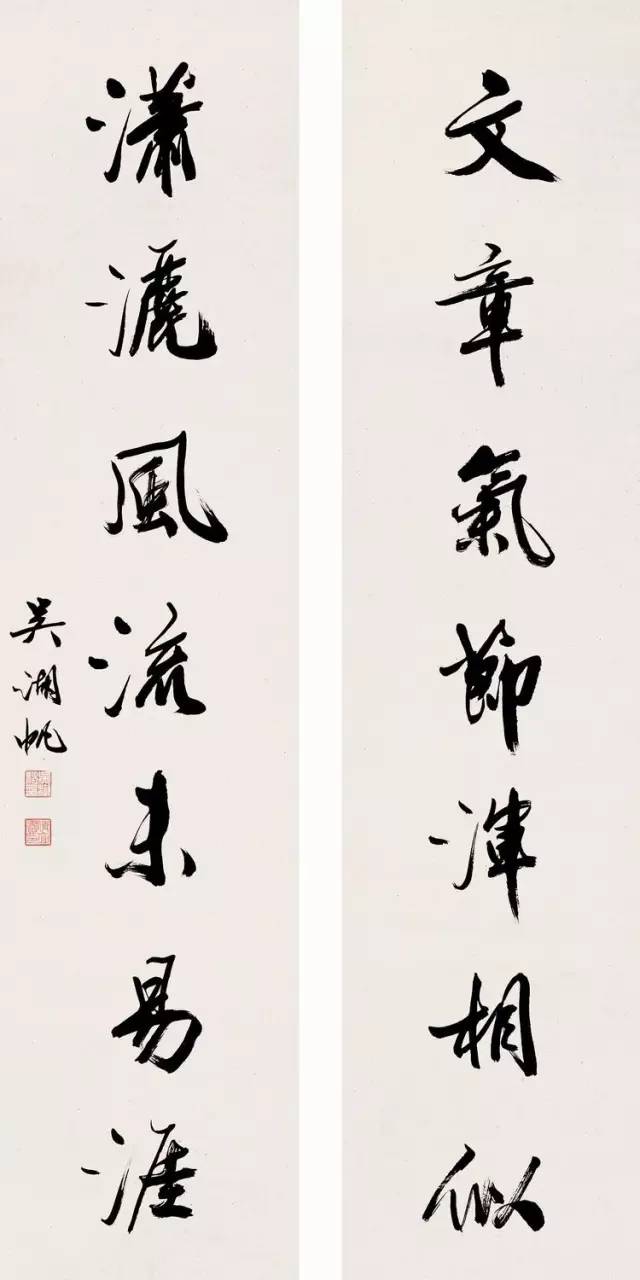 文章氣節渾相似
瀟灑風流未易涯
吳湖帆